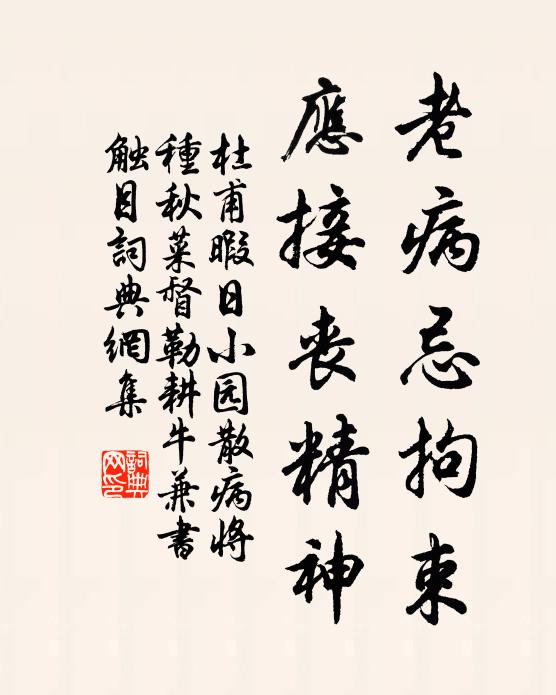 老病忌拘束
應接丧精神
杜甫暇日小园散病將
種秋菜督勒耕牛兼書
触目詞典網集
詞典
网印